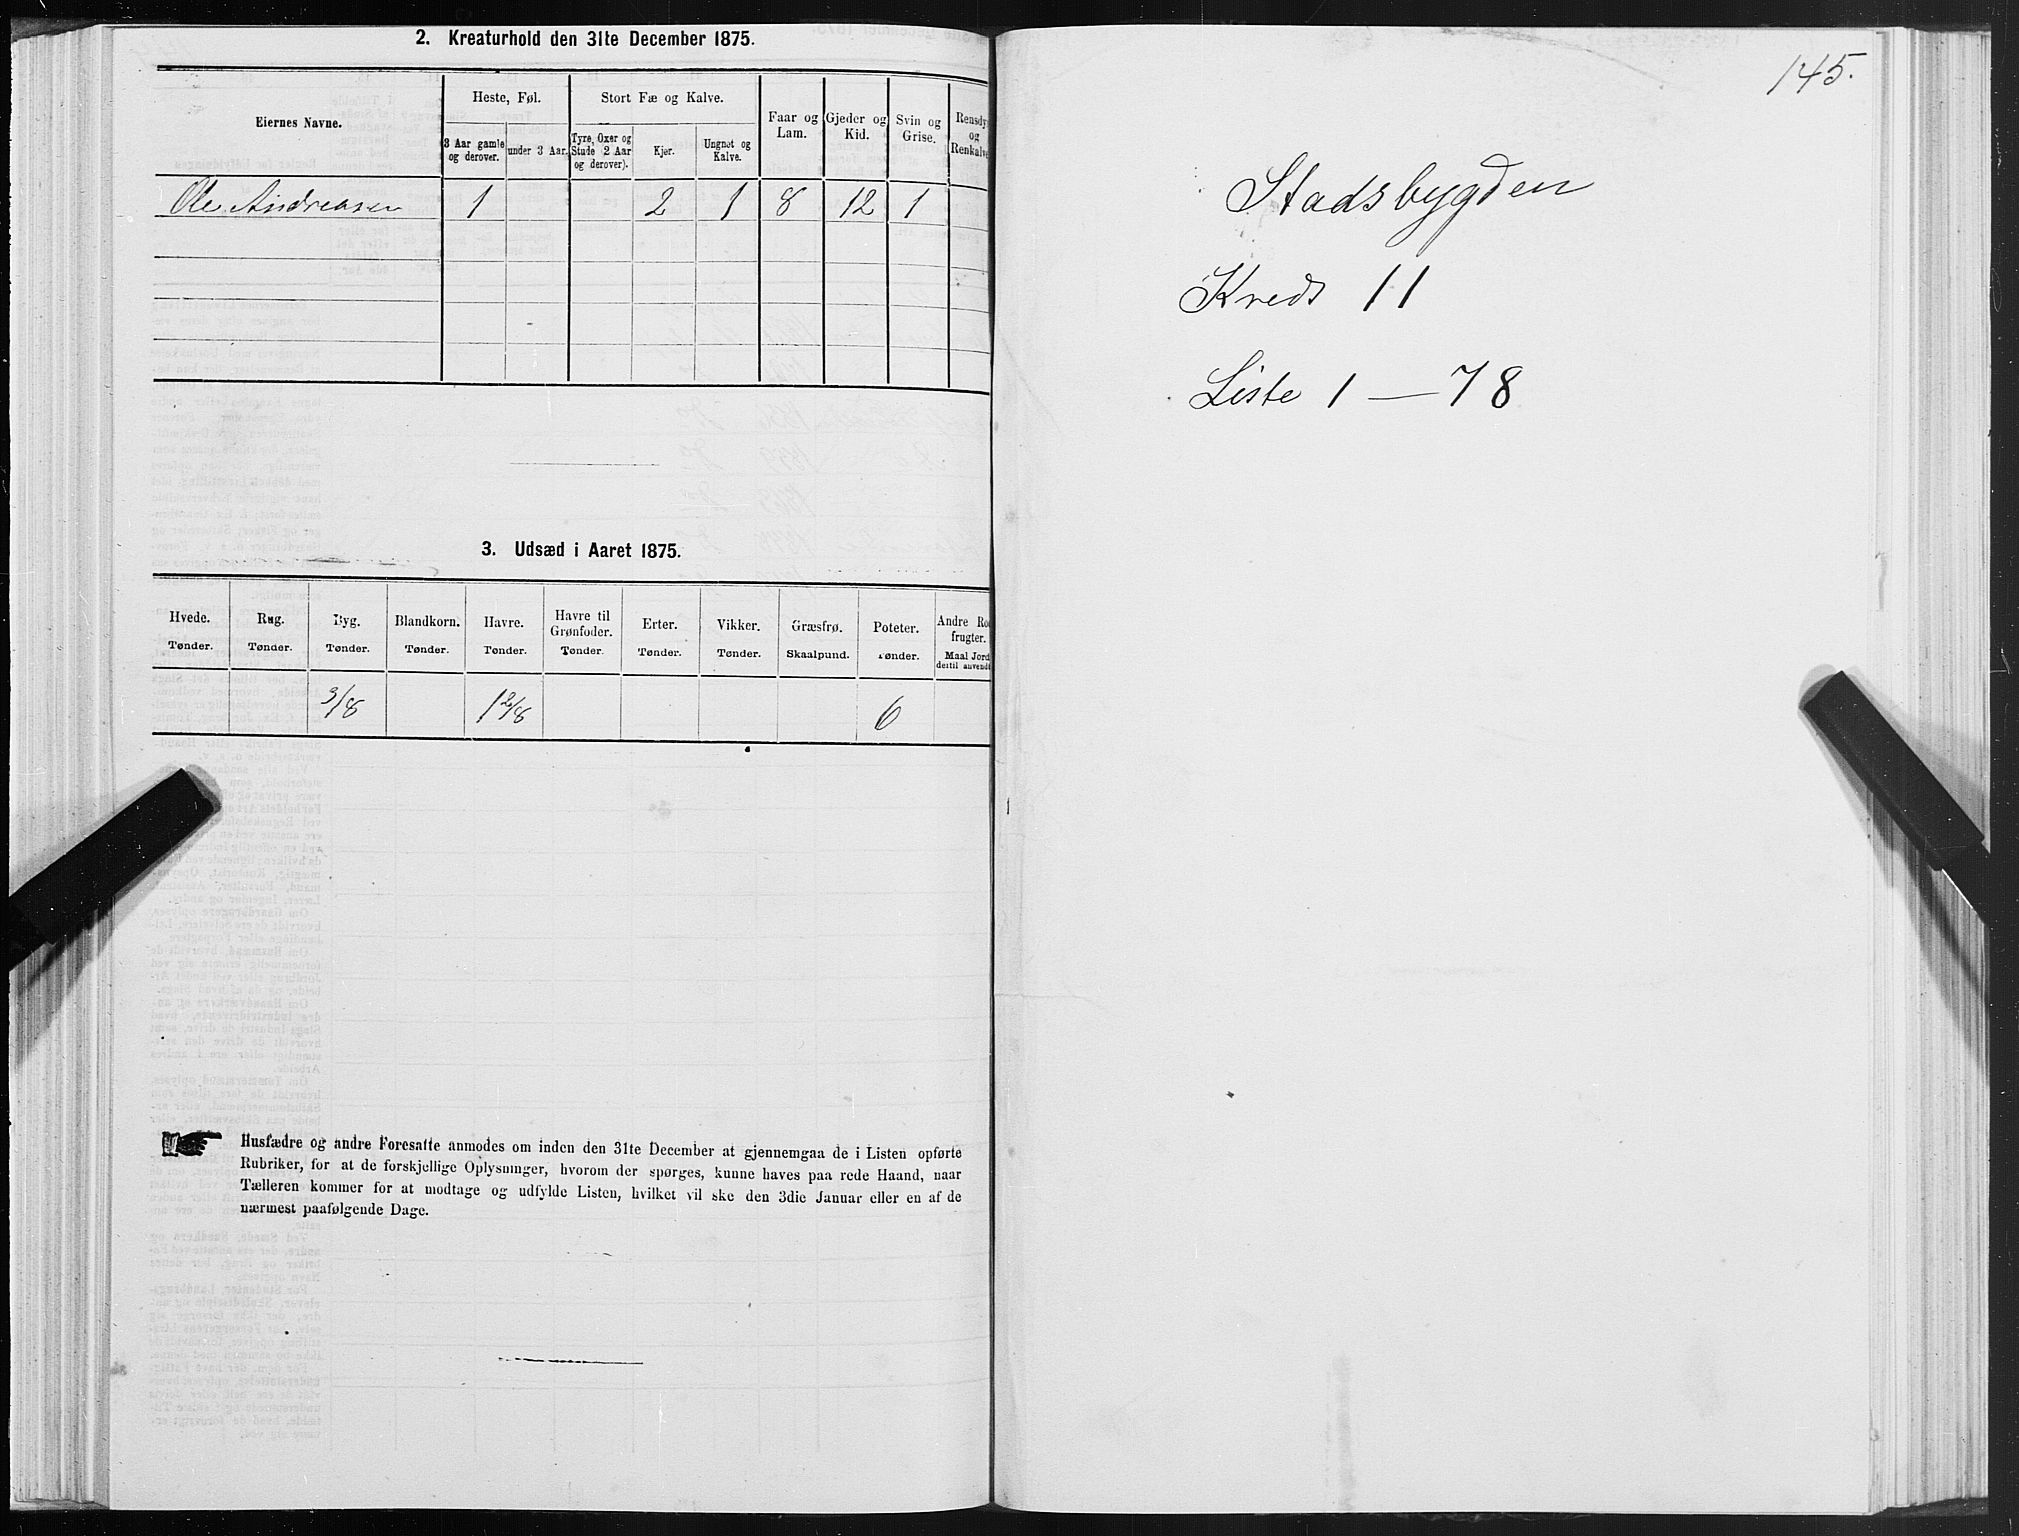 2. Kreaturhold den 31te December 1875.
Eiernes Navne.
Heste, Føl.
Stort Fæ og Kalve.
3 Aar gamle og derover.
under 3 Aar.
Tyre, Oxer og Stude 2 Aar og derover).
Kjør.
Ungnøt og Kalve.
Faar og Lam.
Gjeder og Kid.
Svin og Grise.
Rensdy og Renkalve
Ole Andreasen 1 2 1 8 12 1
3. Udsæd i Aaret 1875.
Hvede. Rug. Byg. Blandkorn. Havre. Havre til Grønfoder. Erter. Vikker. Græsfrø. Poteter. Andre Ro frugter.
Tønder. Tønder. Tønder. Tønder. Tønder. Tønder. Tønder. Tønder. Skaalpund. Tønder. Maal Jord dertil anvendt
3/8 1 2/8 6
Husfædre og andre Foresatte anmodes om inden den 31te December at gjennemgaa de i Listen opførte
Rubriker, for at de forskjellige Oplysninger, hvorom der spørges, kunne haves paa rede Haand, naar
Tælleren kommer for at modtage og udfylde Listen, hvilket vil ske den 3die Januar eller en af de
nærmest paafølgende Dage.
145.
Stadsbygden
Kreds 11
Liste 1 — 78